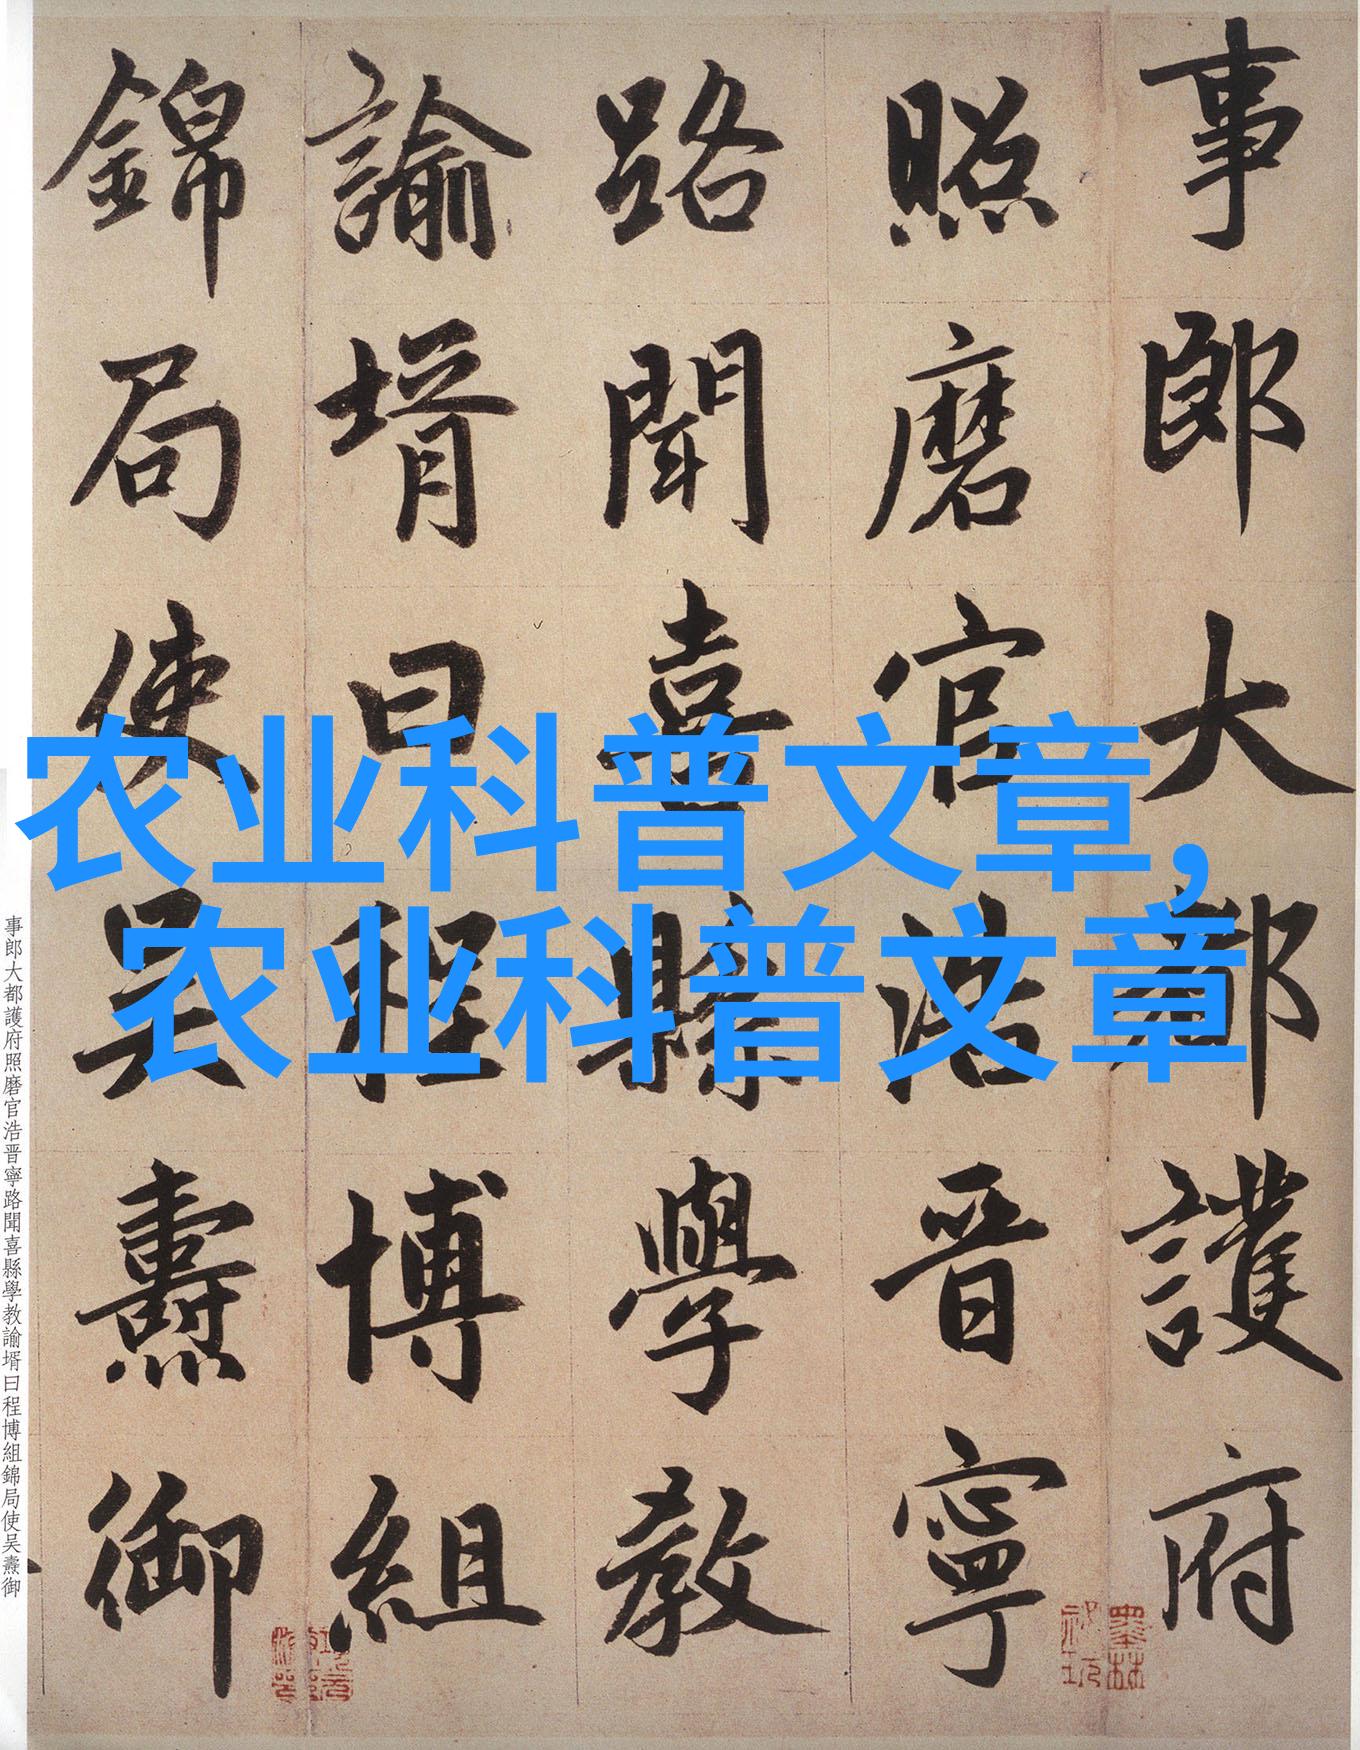 事郎大都護府
照磨官浩晋寧
路聞喜縣學教
諭壻曰程博組
錦局使吴燾御
农业科普文章,
农业科普文章
事郎大都護府照磨官浩晋寧路聞喜縣學教諭壻曰程博組錦局使吴燾御